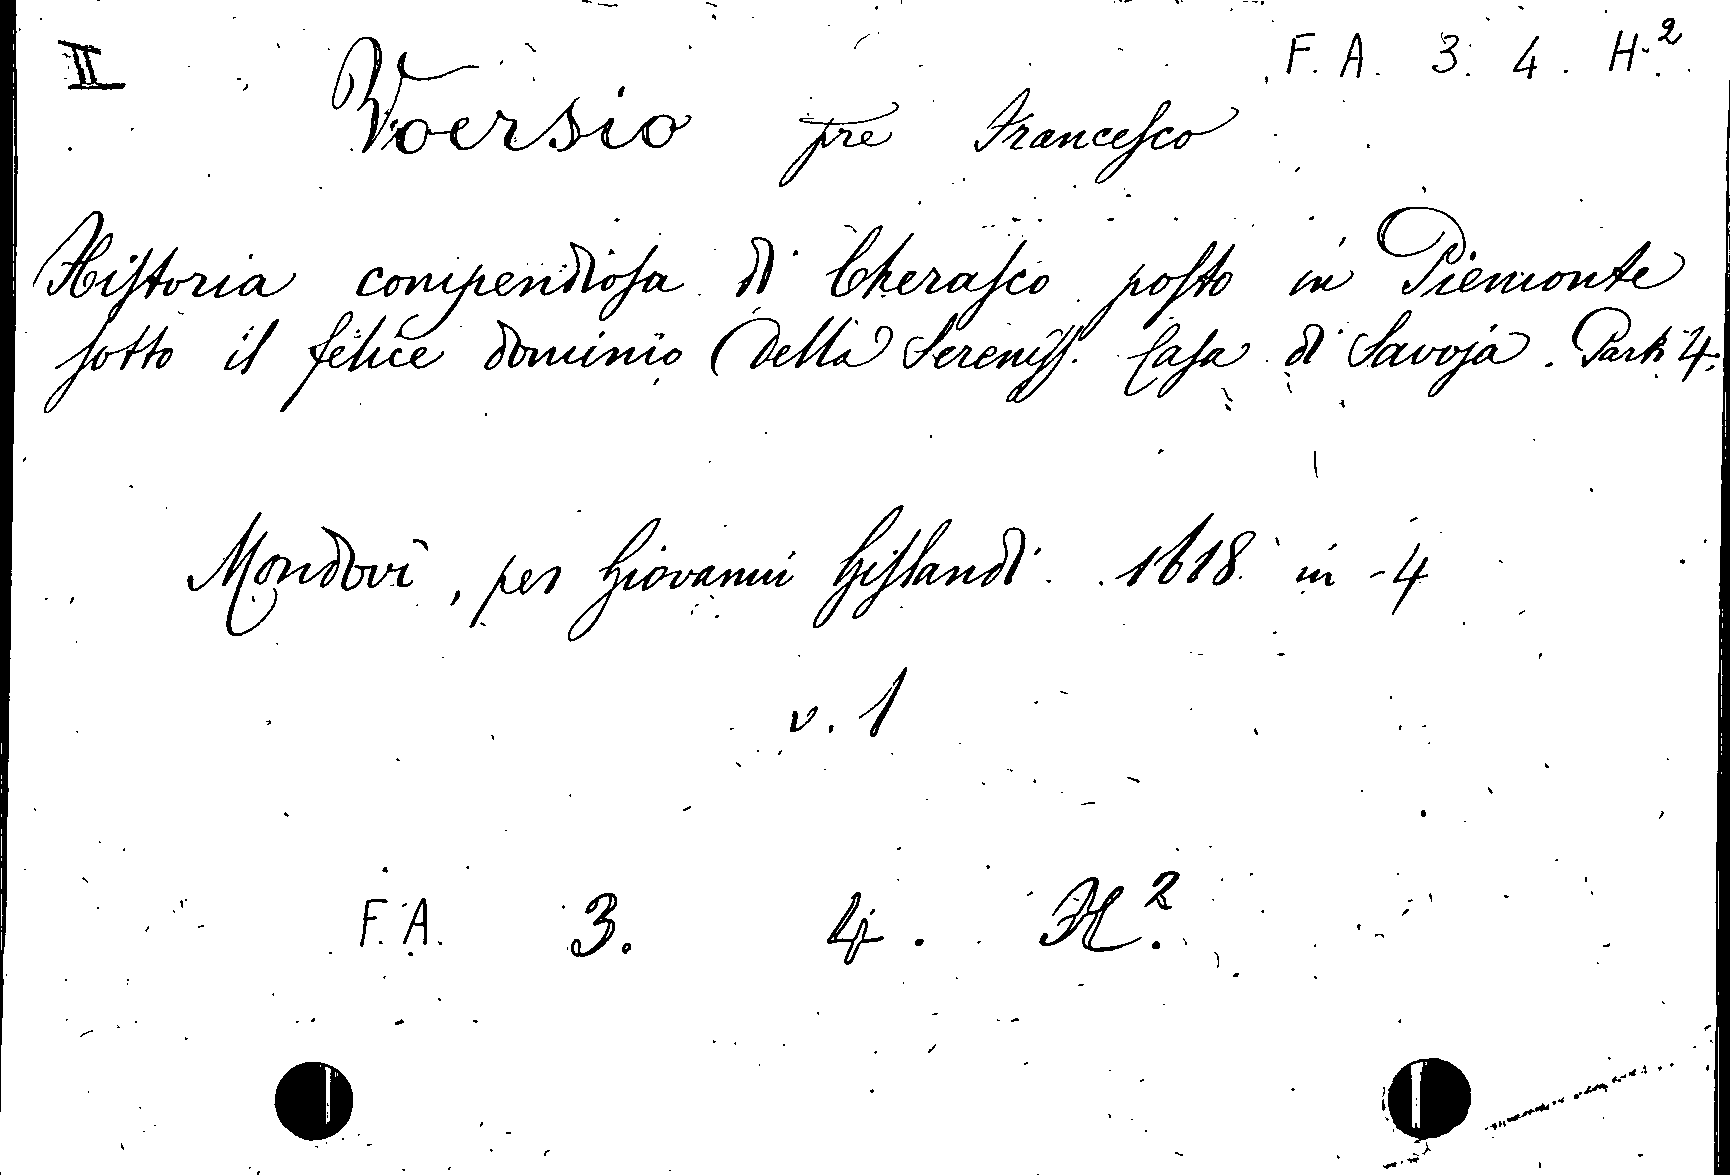 II F. A. 3. 4. H.²
Voersio pre Francesco
Hiſtoria compendioſa di Cheraſco poſto in Piemonte
ſotto il felice dominio della Sereniſſ. Caſa di Savoja. Parti 4.
Mondovì, per Giovanni Giſlandi. 1618. in-4
v. 1
F. A. 3. 4. H.²